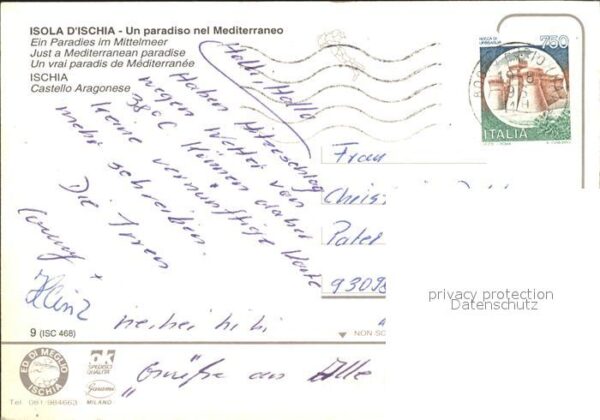 ISOLA D'ISCHIA - Un paradiso nel Mediterraneo
Ein Paradies im Mittelmeer
Just a Mediterranean paradise
Un vrai paradis de Méditerranée
ISCHIA
Castello Aragonese
Hallo, Hallo
Haben Hitzeschlag
wegen Wetter von
38°C können daher
keine vernünftige Karte
mehr schreiben.
Die Irren
Conny +
Heinz
hi hi
Grüße an Alle
"
ROCCA DI
URBISAGLIA
750
ITALIA
Frau
Christ
Pater
93098
privacy protection
Datenschutz
9 (ISC 468)
NON SC
ED. DI MEGLIO
ISCHIA
Tel. 081-984663
SPEDISCI
QUALITÀ
Garami
MILANO